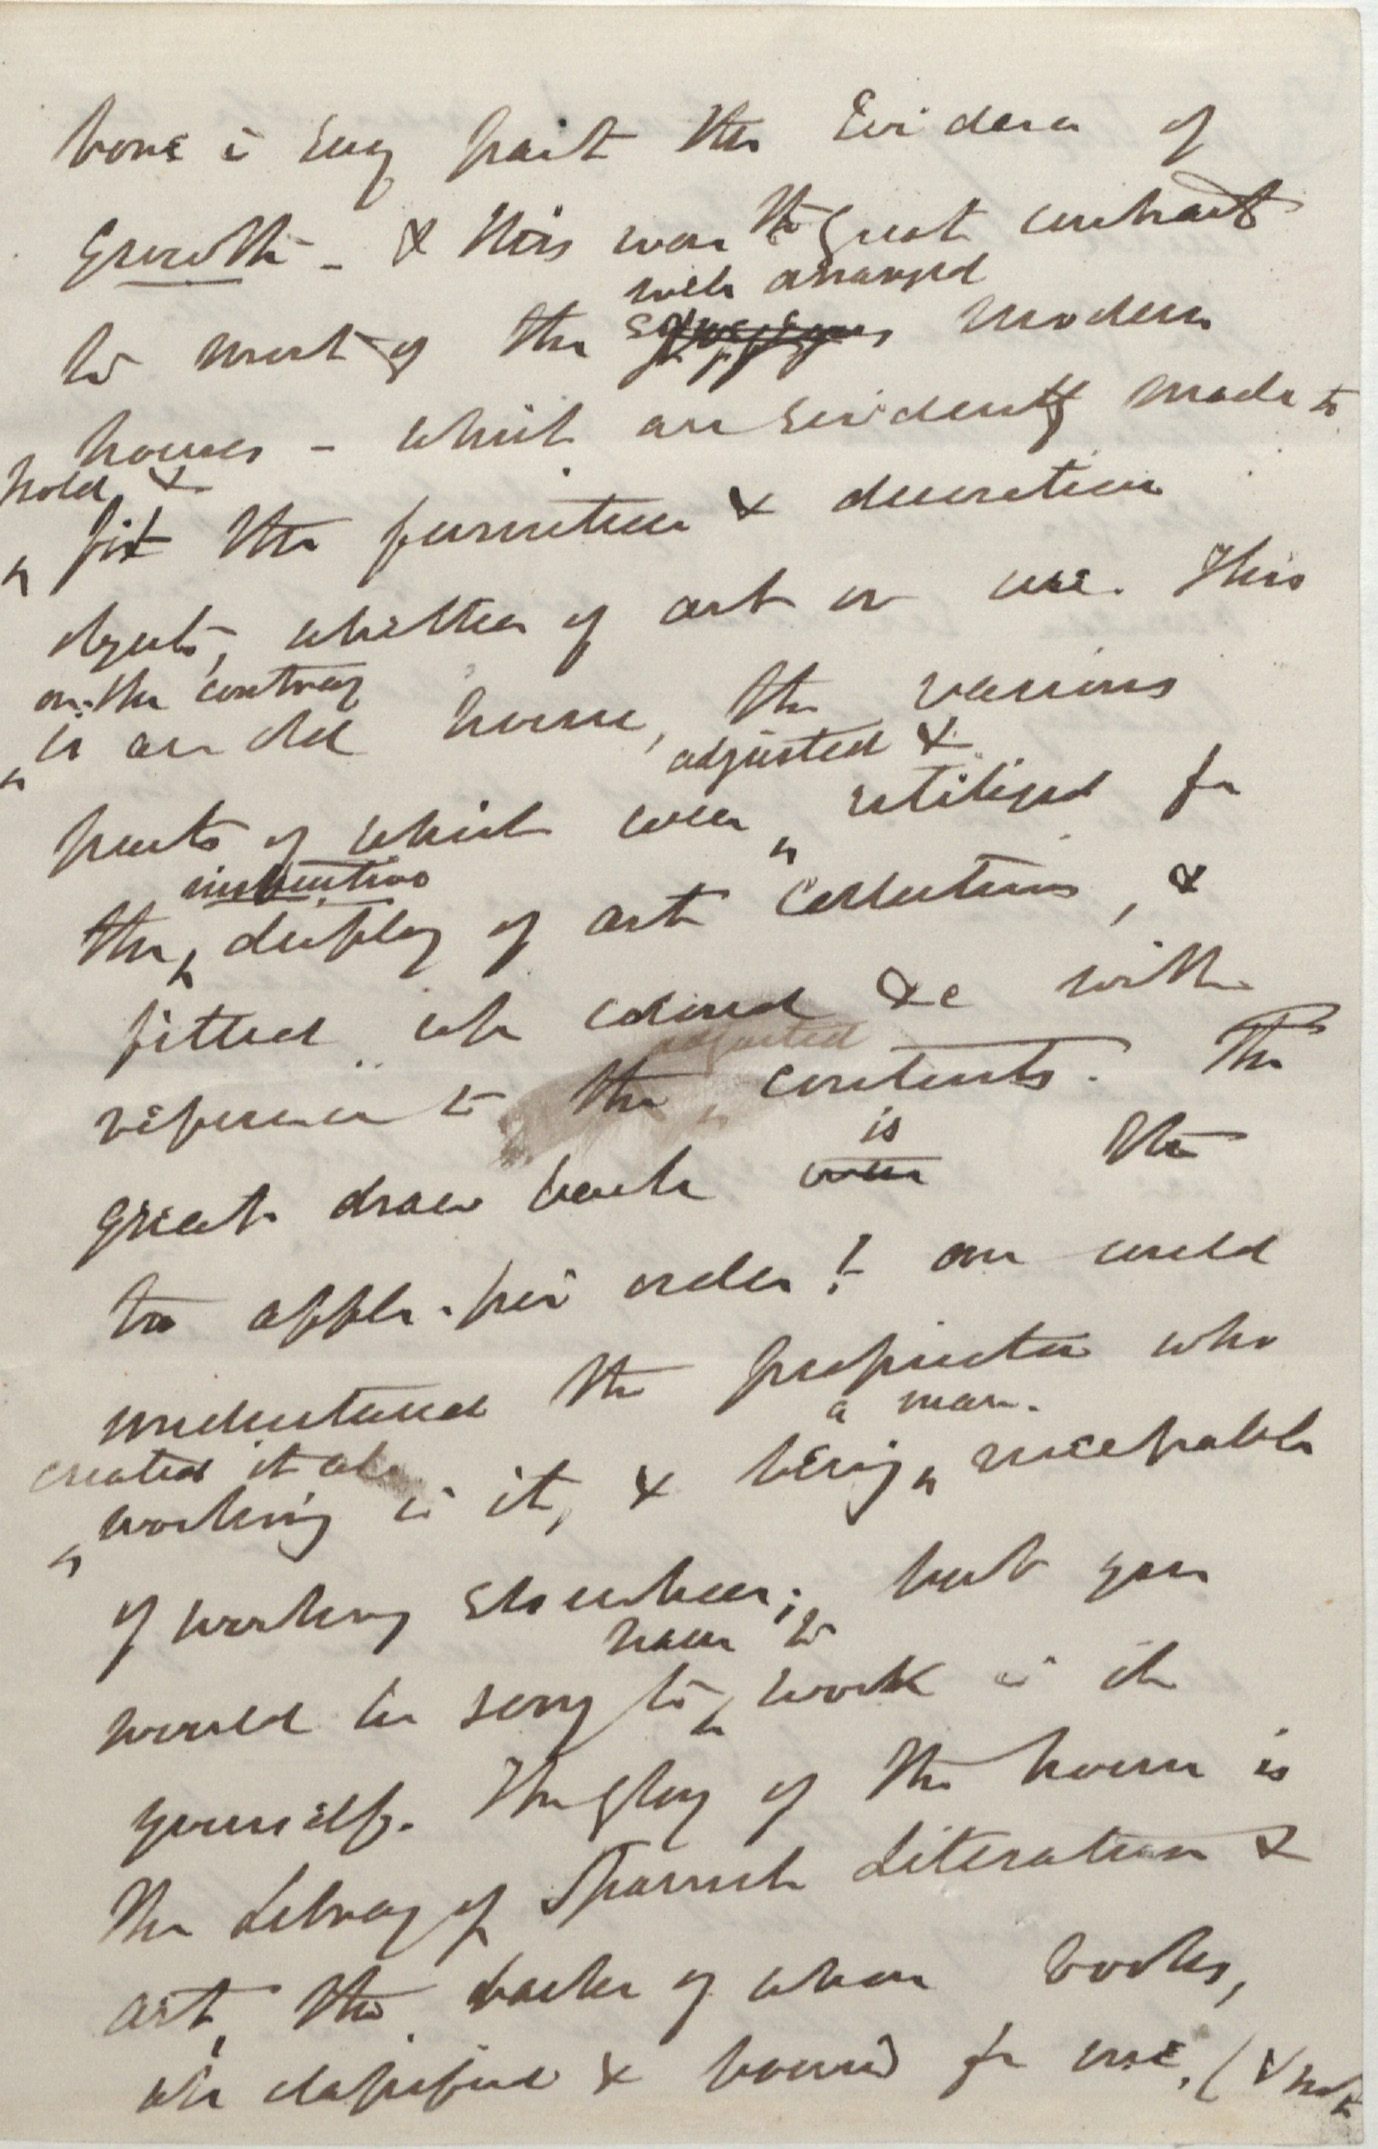 bore in every part the Evidence of
Growth - & this was the great contrast
well arranged
to most of the modern
houses - which are evidently made to
hold &
fit the furniture & decorative
objects, whether of art or use. This
on the contrary
is an old house, the various
adjusted &
parts of which were utilized for
instructive
the display of art collections, &
fitted up coloured &c with
adjusted
reference to the contents. The
great draw back is the
too apple-pie order! one could
understand the proprietor who
created it all
a man
working in it, & being incapable
of working elsewhere; but you
have to
would be sorry to work in it
yourself. The glory of the house is
the Library of Spanish Literature &
art, the backs of whose books,
all classified & bound for use, (& not